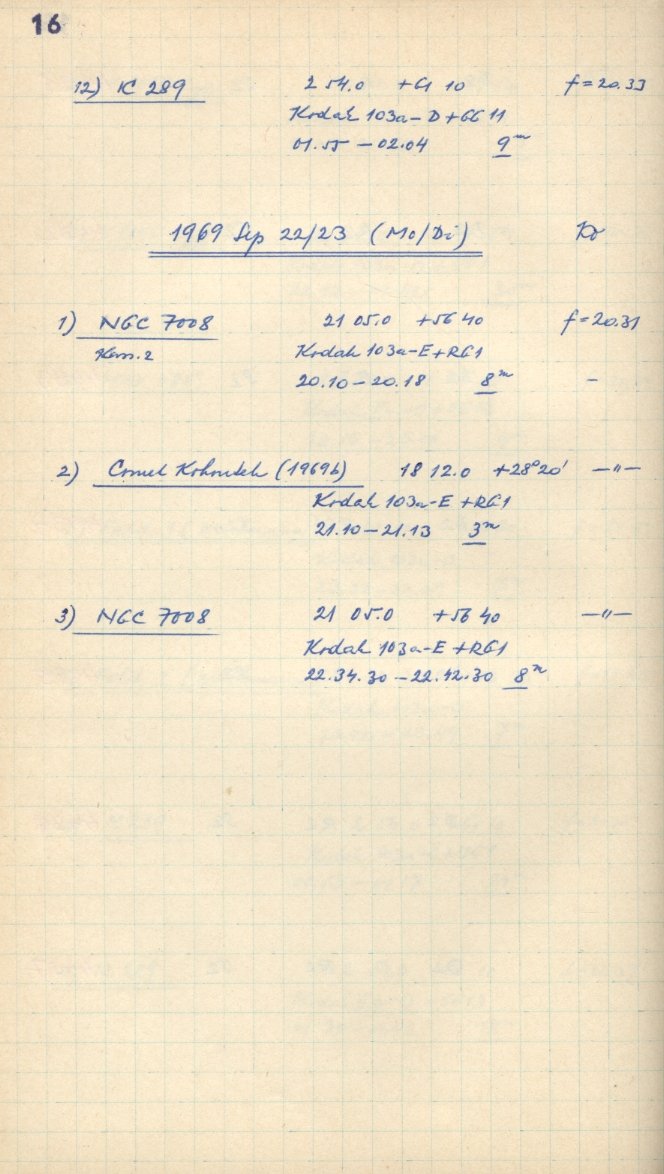 16
12) IC 289 2 54.0 +61 10 f=20.33
Kodak 103a-D+GG 11
01.55 – 02.04 9m
1969 Sep 22/23 (Mo/Di)
1) NGC 7008 21 05.0 +56 40 f=20.31
Kodak 103a-E+RG1
20.10 – 20.18 8m –
2) Comet Kohoutek (1969b) 18 12.0 +28°20' —"—
Kodak 103a-E +RG1
21.10 – 21.13 3m
3) NGC 7008 21 05.0 +56 40 —"—
Kodak 103a-E +RG1
22.34.30 – 22.42.30 8m